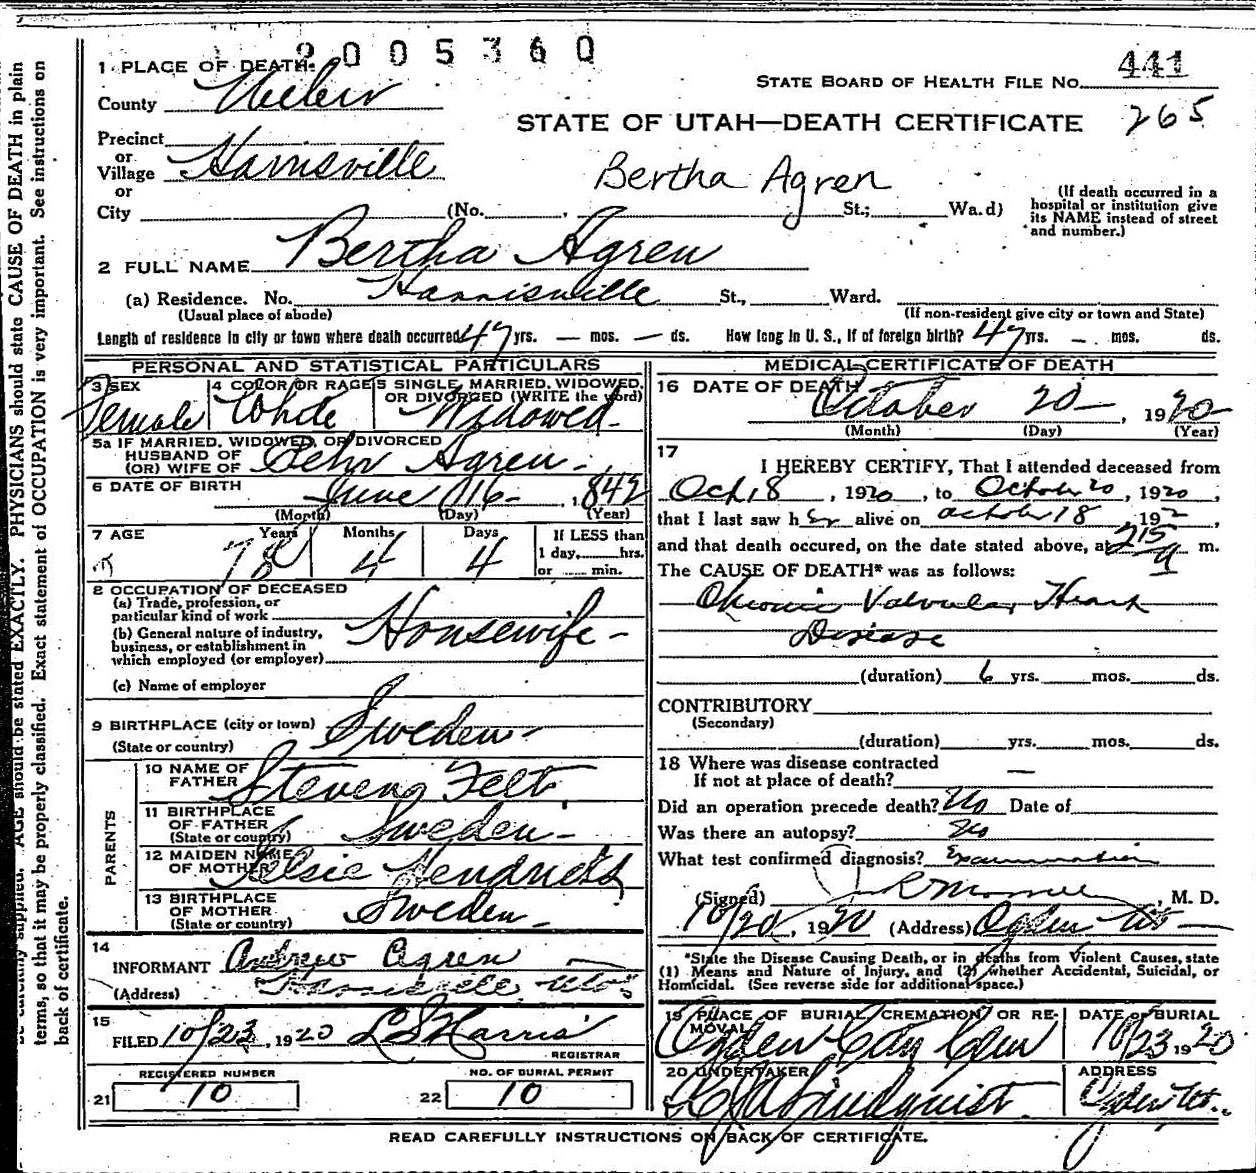 2005360
1 PLACE OF DEATH.
STATE BOARD OF HEALTH FILE No. 441
County Weber
265
STATE OF UTAH—DEATH CERTIFICATE
Precinct
or
Village Harrisville
Bertha Agren
or
City (No. , St.; Wa.d)
(If death occurred in a hospital or institution give its NAME instead of street and number.)
2 FULL NAME Bertha Agren
(a) Residence. No. Harrisville St., Ward.
(Usual place of abode) (If non-resident give city or town and State)
Length of residence in city or town where death occurred 47 yrs. — mos. — ds. How long in U. S., if of foreign birth? 47 yrs. — mos. ds.
PERSONAL AND STATISTICAL PARTICULARS
3 SEX Female
4 COLOR OR RACE White
5 SINGLE, MARRIED, WIDOWED, OR DIVORCED (WRITE the word) Widowed
5a IF MARRIED, WIDOWED, OR DIVORCED
HUSBAND OF
(OR) WIFE OF Pehr Agren
6 DATE OF BIRTH June 16 , 1842
(Month) (Day) (Year)
7 AGE Years Months Days
78 4 4
If LESS than
1 day, hrs.
or min.
8 OCCUPATION OF DECEASED
(a) Trade, profession, or
particular kind of work
(b) General nature of industry,
business, or establishment in
which employed (or employer)
Housewife
(c) Name of employer
9 BIRTHPLACE (city or town)
(State or country) Sweden
PARENTS
10 NAME OF
FATHER Stevens Felt
11 BIRTHPLACE
OF FATHER
(State or country) Sweden
12 MAIDEN NAME
OF MOTHER Elsie Hendricks
13 BIRTHPLACE
OF MOTHER
(State or country) Sweden
14
INFORMANT Andrew Agren
(Address) Harrisville Utah
15
FILED 10/23, 1920 L S Harris
REGISTRAR
REGISTERED NUMBER
21 10
NO. OF BURIAL PERMIT
22 10
MEDICAL CERTIFICATE OF DEATH
16 DATE OF DEATH
October 20 , 1920
(Month) (Day) (Year)
17
I HEREBY CERTIFY, That I attended deceased from
Oct 18 , 1920 , to October 20 , 1920 ,
that I last saw her alive on October 18 192 ,
and that death occured, on the date stated above, at 215 a m.
The CAUSE OF DEATH* was as follows:
Chronic Valvular Heart
Disease
(duration) 6 yrs. mos. ds.
CONTRIBUTORY
(Secondary)
(duration) yrs. mos. ds.
18 Where was disease contracted
If not at place of death? —
Did an operation precede death? No Date of
Was there an autopsy? No
What test confirmed diagnosis? Examination
(Signed) , M. D.
10/20, 1920 (Address) Ogden Ut
*State the Disease Causing Death, or in deaths from Violent Causes, state
(1) Means and Nature of Injury, and (2) whether Accidental, Suicidal, or
Homicidal. (See reverse side for additional space.)
19 PLACE OF BURIAL, CREMATION OR REMOVAL
Ogden City Cem
DATE OF BURIAL
10/23 1920
20 UNDERTAKER
Lindquist
ADDRESS
Ogden Ut.
READ CAREFULLY INSTRUCTIONS ON BACK OF CERTIFICATE.
AGE should be stated EXACTLY. PHYSICIANS should state CAUSE OF DEATH in plain
terms, so that it may be properly classified. Exact statement of OCCUPATION is very important. See instructions on
back of certificate.